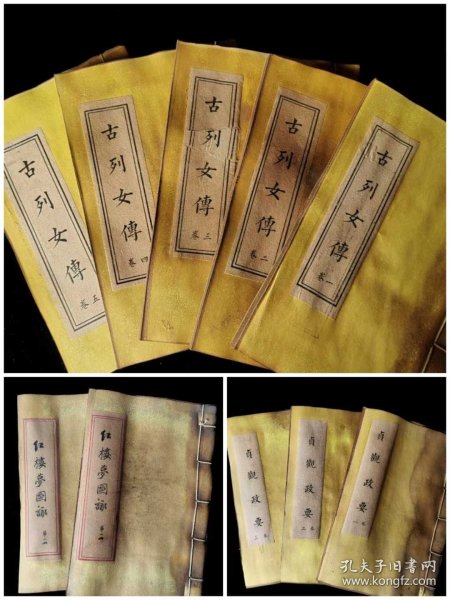 古列女傳
卷五
古列女傳
卷四
古列女傳
卷三
古列女傳
卷二
古列女傳
卷一
紅樓夢圖詠
第二冊
紅樓夢圖詠
第一冊
貞觀政要
貞觀政要
貞觀政要
孔夫子旧书网
www.kongfz.com